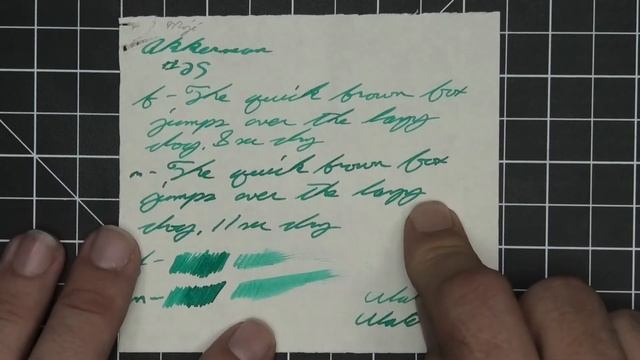 Akkerman
#25
f - The quick brown fox
jumps over the lazy
dog, 8 sec dry
m - The quick brown fox
jumps over the lazy
dog, 11 sec dry
f -
m -